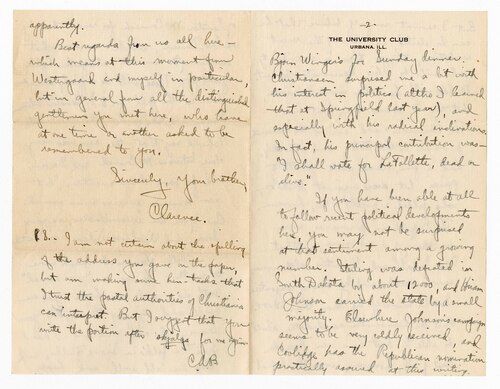 apparently.
Best regards from us all here —
which means at this moment from
Westergaard and myself in particular,
but in general from all the distinguished
gentlemen you met here, who have
at one time or another asked to be
remembered to you.
Sincerely, your brother,
Clarence.
P.S.. I am not certain about the spelling
of the address you gave in the paper,
but am making some hen-tracks that
I trust the postal authorities of Christiania
can interpret. But I suggest that you
write the portion after for me again
CAB
-2-
THE UNIVERSITY CLUB
URBANA, ILL.
Bjorn Winger's for Sunday dinner.
Christensen surprised me a bit with
his interest in politics (altho I learned
that at Springfield last year), and
especially with his radical inclinations.
In fact, his principal contribution was—
"I shall vote for LaFollette, dead or
alive."
If you have been able at all
to follow recent political developments
here, you may not be surprised
at that sentiment among a growing
number. Sterling was defeated in
South Dakota by about 1200, and Hiram
Johnson carried the state by a small
majority. Elsewhere Johnson's campaign
seems to be very coldly received, and
Coolidge has the Republican nomination
practically assured at this writing.